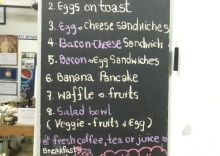 2. Eggs on toast
3. Egg + Cheese sandwiches
4. Bacon Cheese Sandwich
5. Bacon + Egg Sandwiches
6. Banana Pancake
7. Waffle + fruits
8. Salad bowl
( Veggie - fruits + Egg )
fresh coffee, tea or juice
Breakfast